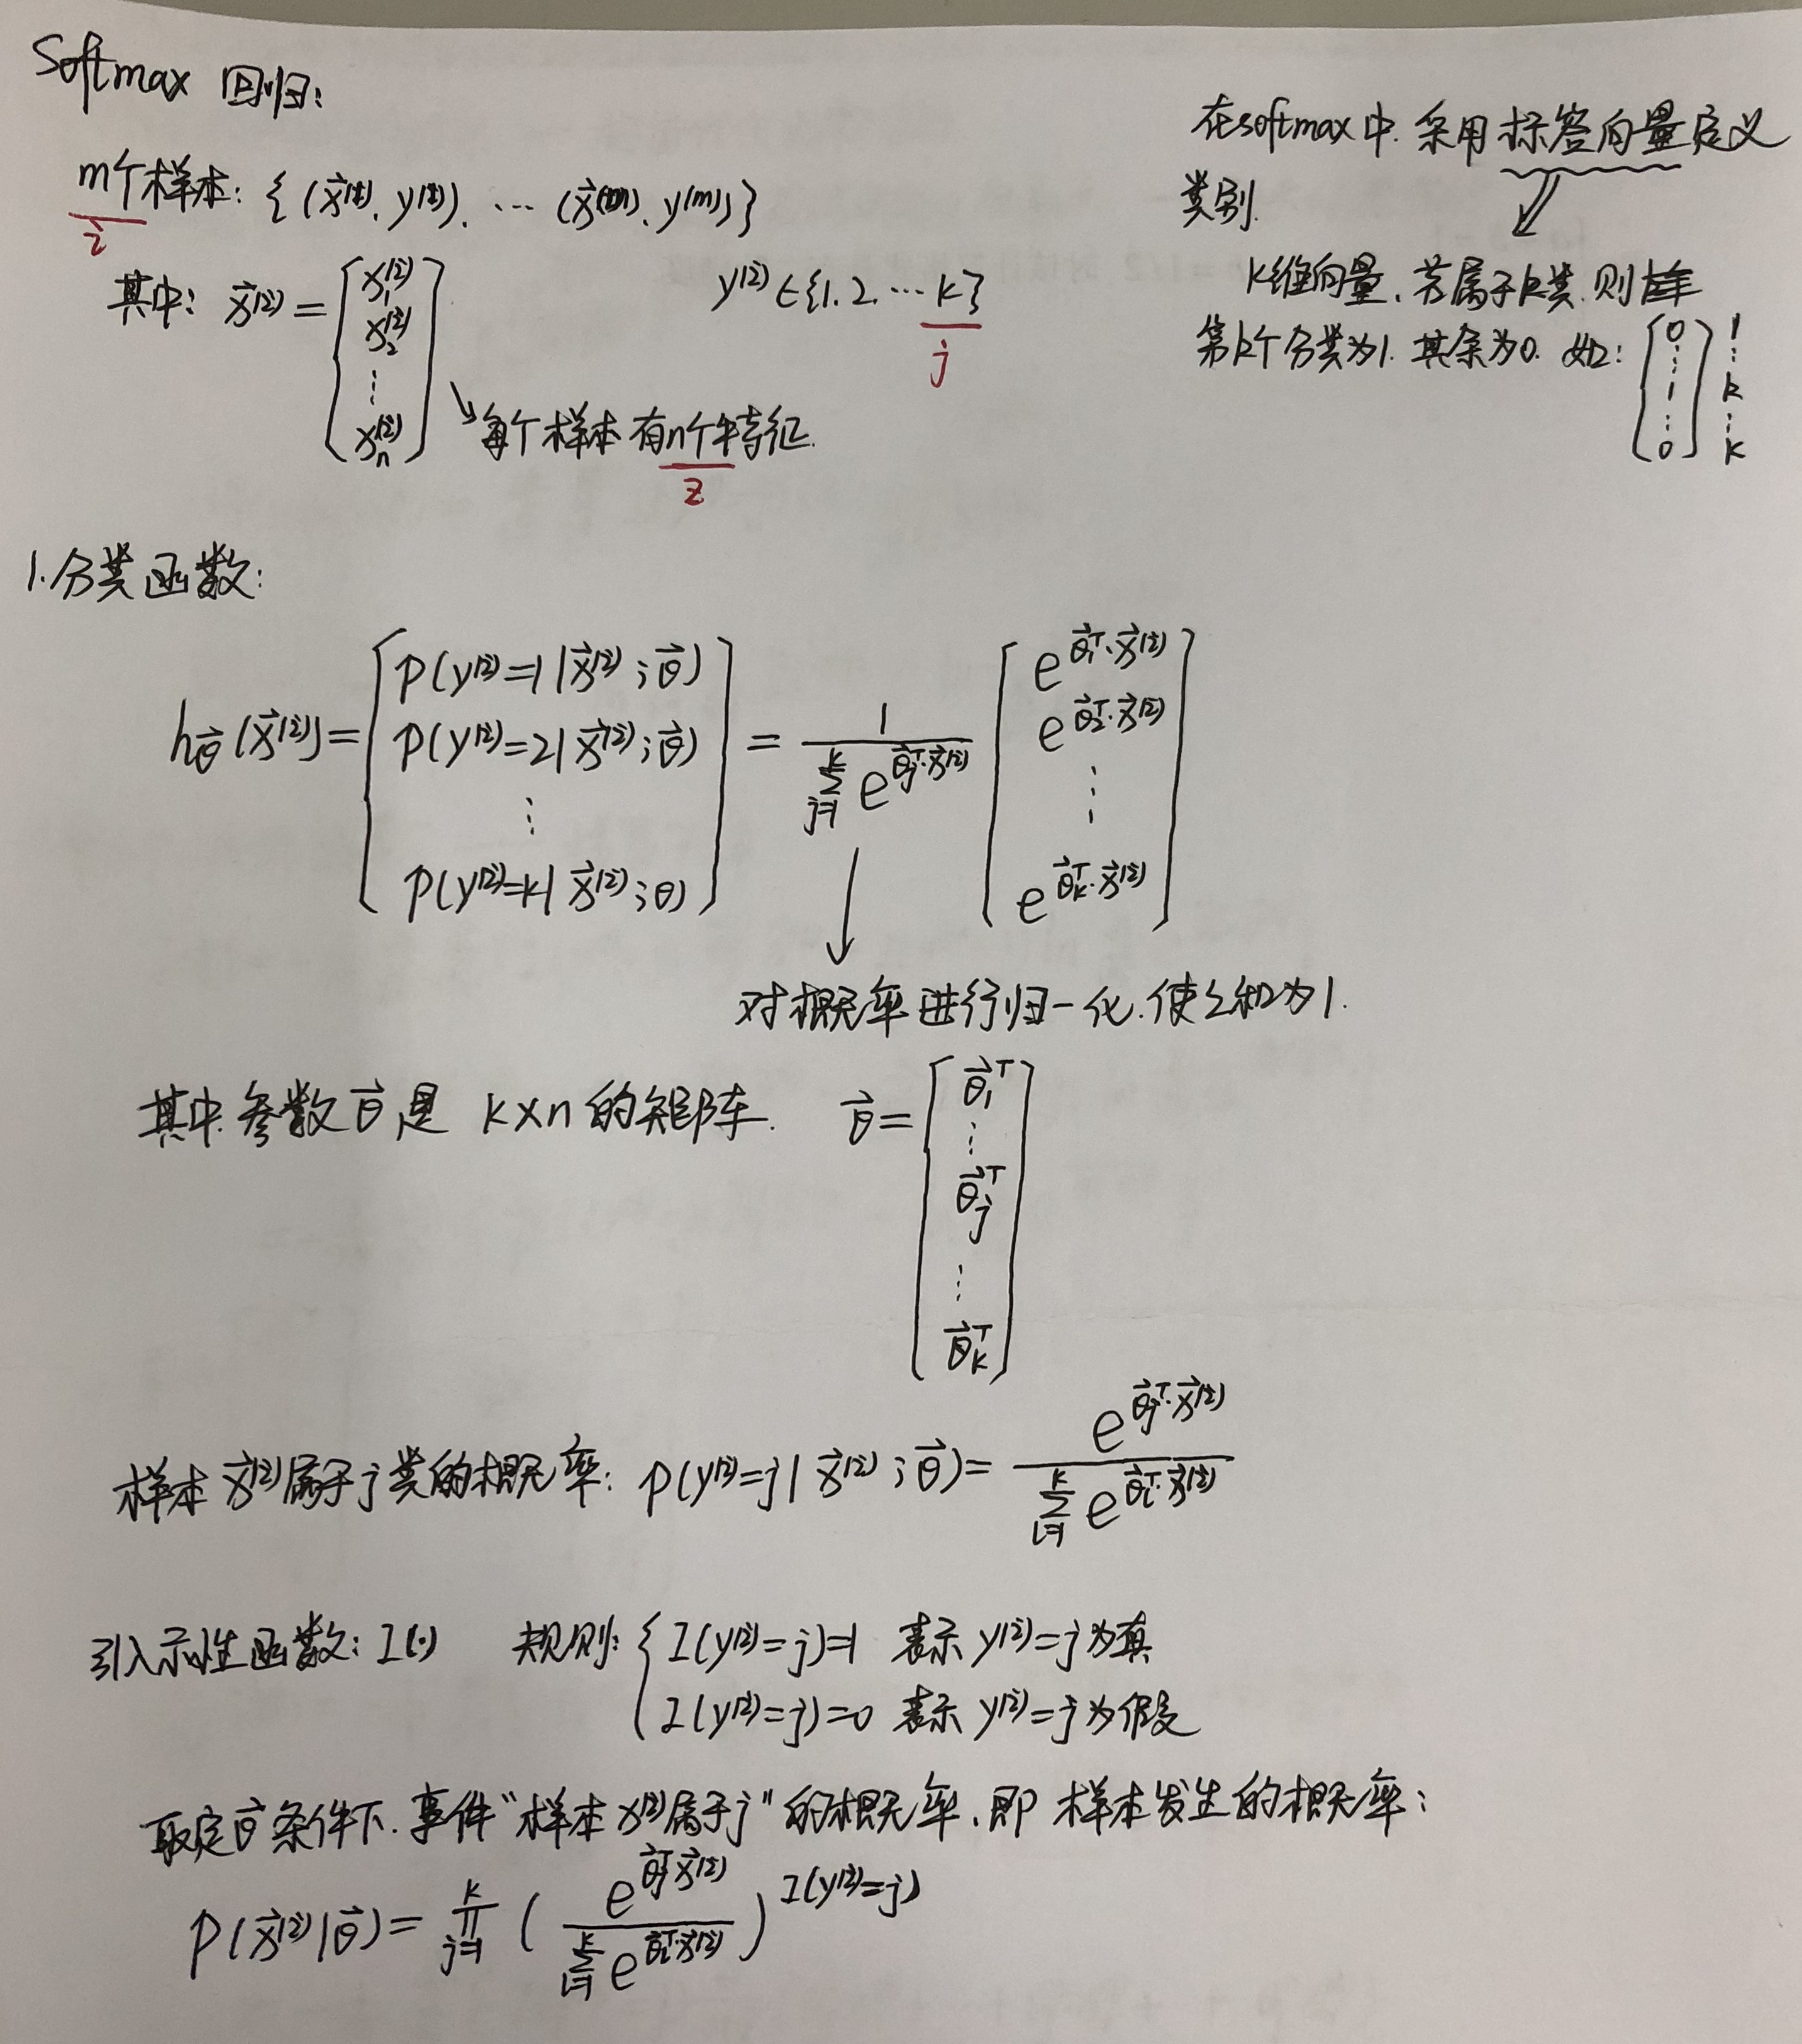 Softmax 回归:
m个样本: {(x⃗⁽¹⁾, y⁽¹⁾), ⋯ (x⃗⁽ᵐ⁾, y⁽ᵐ⁾)}
i
其中: x⃗⁽ⁱ⁾ = [x₁⁽ⁱ⁾ x₂⁽ⁱ⁾ ⋮ xₙ⁽ⁱ⁾] y⁽ⁱ⁾ ∈ {1, 2, ⋯ k}
j
↘ 每个样本有n个特征.
z
在softmax中, 采用标签向量定义
类别.
K维向量, 若属于k类, 则
第k个分类为1. 其余为0. 如: [0 ⋮ 1 ⋮ 0] 1 ⋮ k ⋮ K
1. 分类函数:
h_θ⃗(x⃗⁽ⁱ⁾) = [p(y⁽ⁱ⁾=1|x⃗⁽ⁱ⁾;θ⃗) p(y⁽ⁱ⁾=2|x⃗⁽ⁱ⁾;θ⃗) ⋮ p(y⁽ⁱ⁾=k|x⃗⁽ⁱ⁾;θ)] = 1 / Σ_{j=1}^{k} e^{θ⃗ⱼᵀ·x⃗⁽ⁱ⁾} [e^{θ⃗₁ᵀ·x⃗⁽ⁱ⁾} e^{θ⃗₂ᵀ·x⃗⁽ⁱ⁾} ⋮ e^{θ⃗ₖᵀ·x⃗⁽ⁱ⁾}]
对概率进行归一化, 使之和为1.
其中, 参数θ⃗是 k×n 的矩阵. θ⃗ = [θ⃗₁ᵀ ⋮ θ⃗ⱼᵀ ⋮ θ⃗ₖᵀ]
样本 x⃗⁽ⁱ⁾属于j类的概率: p(y⁽ⁱ⁾=j|x⃗⁽ⁱ⁾;θ⃗) = e^{θ⃗ⱼᵀ·x⃗⁽ⁱ⁾} / Σ_{l=1}^{k} e^{θ⃗ₗᵀ·x⃗⁽ⁱ⁾}
引入示性函数: I(·) 规则: { I(y⁽ⁱ⁾=j)=1 表示 y⁽ⁱ⁾=j为真
I(y⁽ⁱ⁾=j)=0 表示 y⁽ⁱ⁾=j为假
取定θ⃗条件下, 事件"样本x⁽ⁱ⁾属于j"的概率, 即 样本发生的概率:
p(x⃗⁽ⁱ⁾|θ⃗) = ∏_{j=1}^{k} ( e^{θ⃗ⱼᵀx⃗⁽ⁱ⁾} / Σ_{l=1}^{k} e^{θ⃗ₗᵀ·x⃗⁽ⁱ⁾} )^{I(y⁽ⁱ⁾=j)}